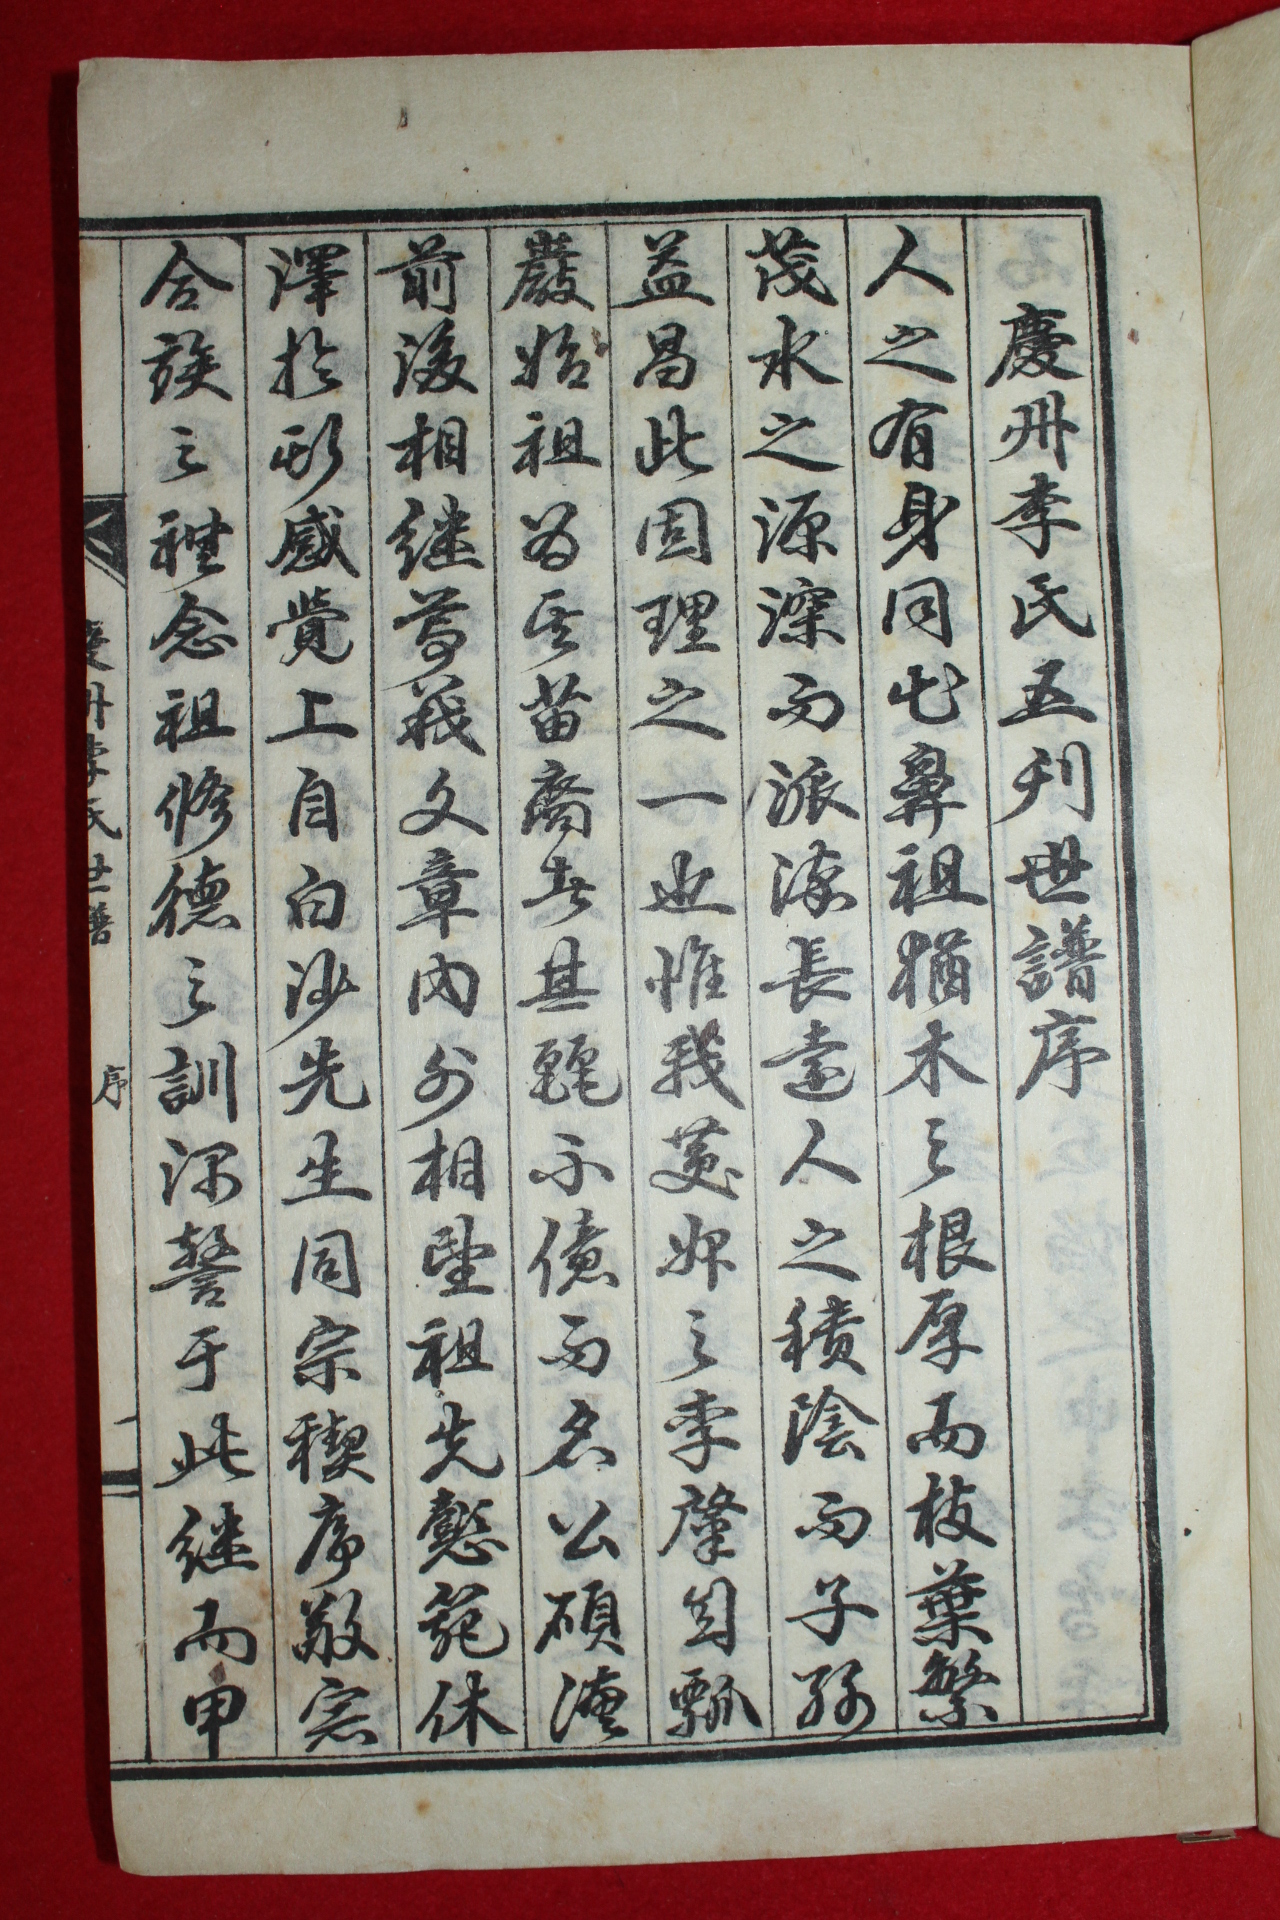 慶州李氏五刊世譜序
人之有身同出鼻祖猶木之根厚而枝葉繁
茂水之源深而派添長遠人之積陰而子孫
益昌此固理之一也惟我慶州之李肇自瓢
巖始祖爲其苗裔者其麗不億而名公碩德
前後相繼尊義文章內外相望祖先懿範休
澤於斯感覺上自白沙先生同宗稧序敬宗
合族之禮念祖修德之訓深警于此繼而甲
慶州李氏世譜 序 一